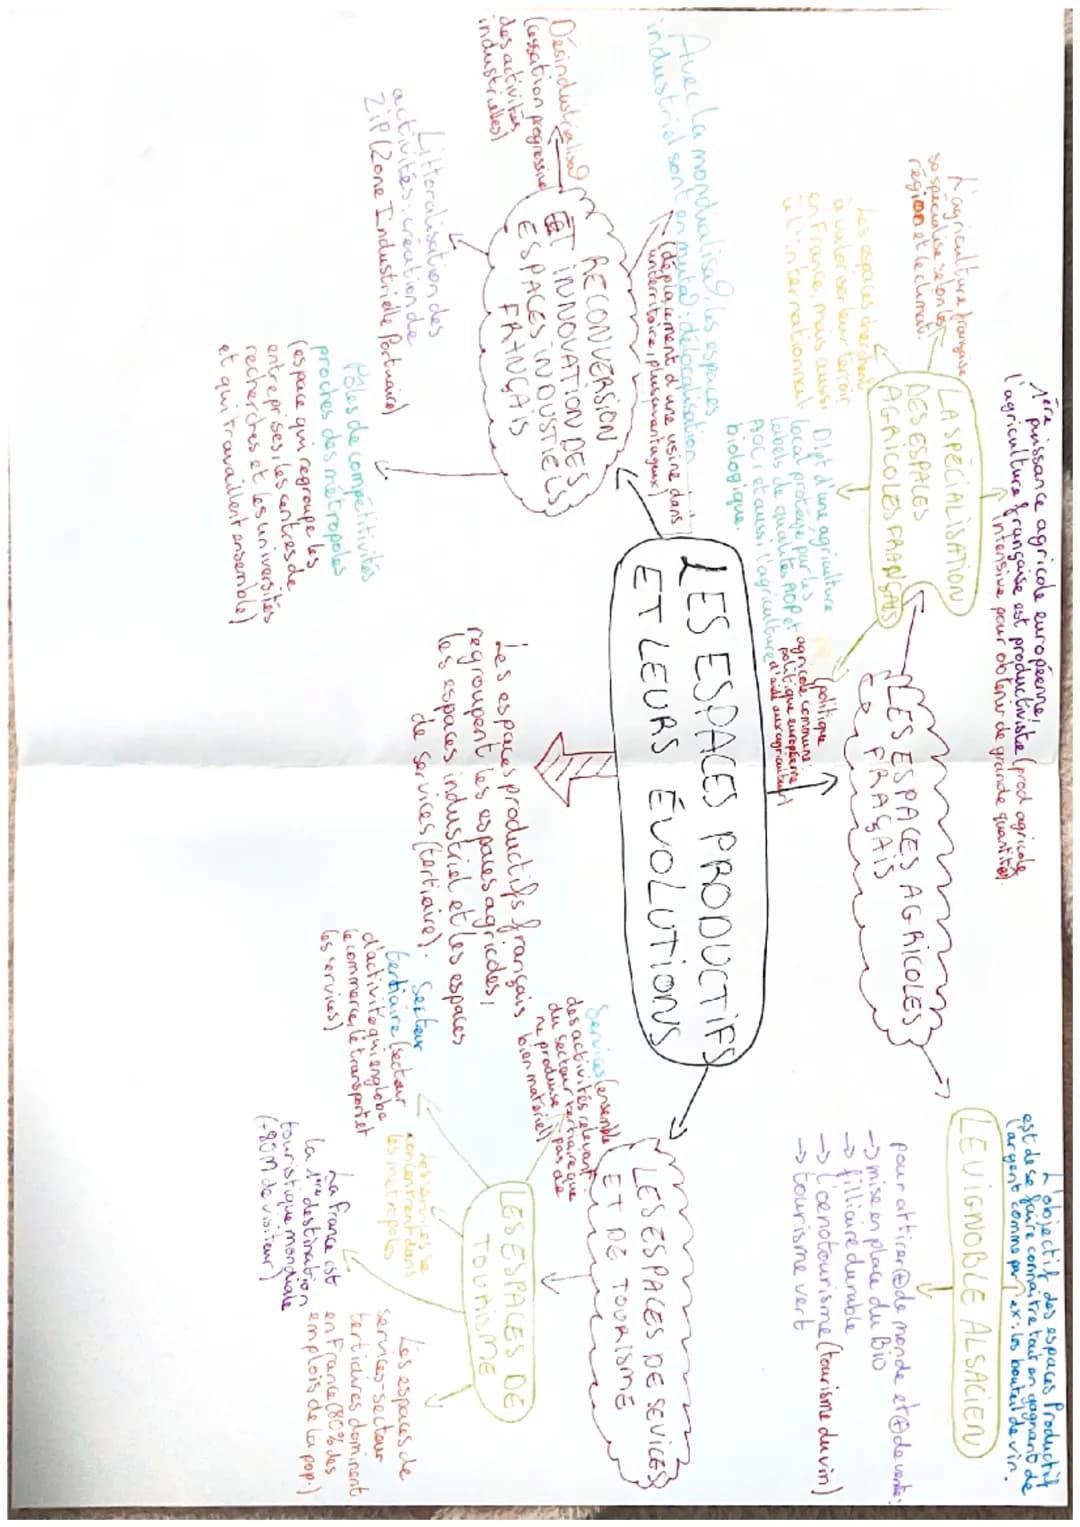 LES ESPACES PRODUCTIFS
ET LEURS ÉVOLUTIONS
Les espaces productifs français
regroupent les espaces agricoles,
les espaces industriel et les espaces
de services (tertiaire).
LES ESPACES AGRICOLES
FRAÇAIS
LA SPÉCIALISATION
DES ESPACES
AGRICOLES FRANÇAIS
1ère puissance agricole européenne,
l'agriculture française est productiviste (prod agricole
intensive pour obtenir de grande quantité).
L'agriculture française
se spécialise selon les
région et le climat
Les espaces cherchent
à valoriser leur terroir
en France, mais aussi
à l'internationnal
Dvpt d'une agriculture
local protégé par les
labels de qualités AOP et
AOC, et aussi l'agriculture
biologique
(politique
agricole commune:
politique européenne
d'aide aux agriculteur)
LE VIGNOBLE ALSACIEN
L'objectif des espaces Productif
est de se faire connaître tout en gagnant de
l'argent comme par ex: les bouteil de vin.
pour attirer ⊕ de monde et ⊕ de vente:
-> mise en place du BIO
-> filliaire durable
-> l'oenotourisme (tourisme du vin)
-> tourisme vert
RECONVERSION
ET INNOVATION DES
ESPACES INDUSTIELS
FRANÇAIS
Avec la mondialisa°, les espaces
industriel sont en muta°: délocalisation
(déplacement d'une usine dans
un territoire, plus avantageux)
Désindustrialisa°
(cessation progressive
des activités
industrielles)
Littoralisation des
activités: création de
ZIP (Zone Industrielle Portuaire)
Pôles de compétitivités
proches des métropoles
(espace qui regroupe les
entreprises, les centres de
recherches et les universités
et qui travaillent ensemble)
LES ESPACES DE SEVICES
ET DE TOURISME
LES ESPACES DE
TOURISME
Services (ensemble
des activités relevant
du secteur tertiaire que
ne produise pas de
bien matériel)
Secteur
tertiaire (secteur
d'activité qui englobe
le commerce, le transport et
les services)
Les services se
concentrent dans
les métropoles
La France est
la 1ère destination
touristique mondiale
(+80M de visiteur)
Les espaces de
services-secteur
tertiaires dominent
en France (80% des
emplois de la pop.)